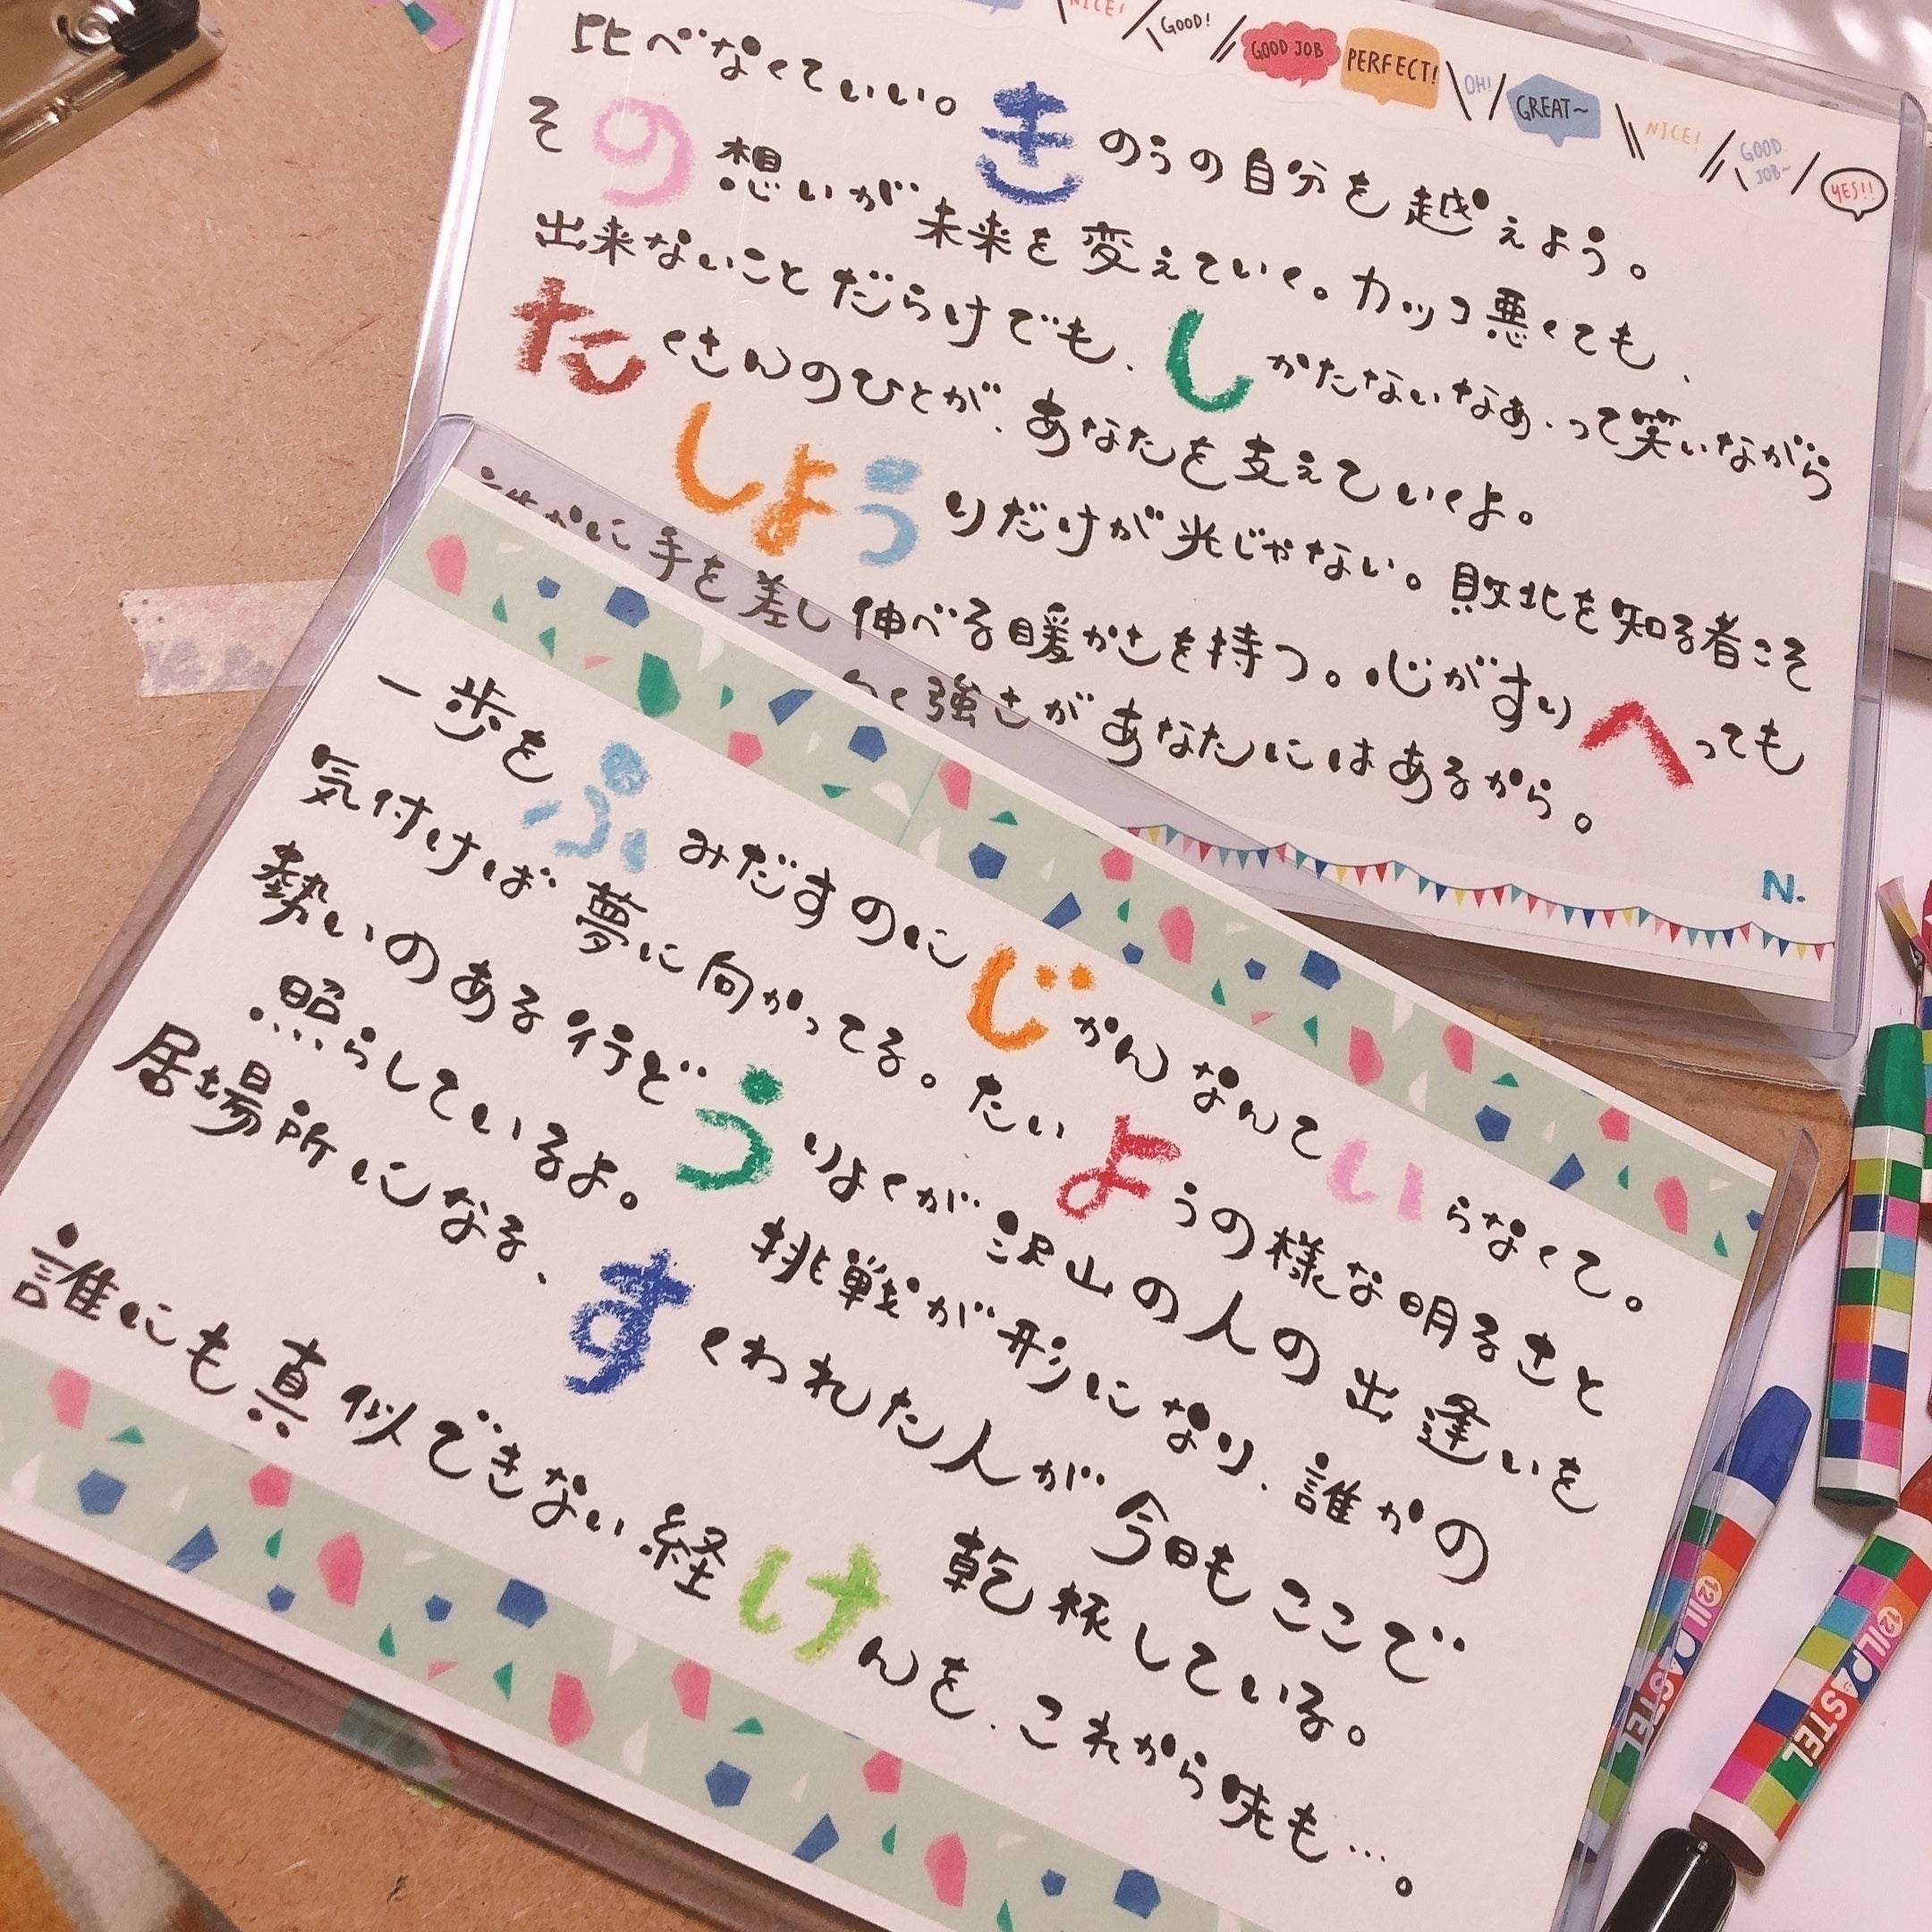 NICE!
GOOD!
GOOD JOB
PERFECT!
OH!
GREAT~
NICE!
GOOD JOB~
YES!!
比べなくていい。きのうの自分を越えよう。
その想いが未来を変えていく。カッコ悪くても、
出来ないことだらけでも、しかたないなあ、って笑いながら
たくさんのひとが、あなたを支えていくよ。
しょうりだけが光じゃない。敗北を知る者こそ
誰かに手を差し伸べる暖かさを持つ。心がすりへっても
く強さがあなたにはあるから。
N.
一歩をふみだすのにじかんなんていらなくて。
気付けば夢に向かってる。たいようの様な明るさと
勢いのある行どうりょくが沢山の人の出逢いを
照らしているよ。挑戦が形になり、誰かの
居場所になる、すくわれた人が今日もここで
乾杯している。
誰にも真似できない経けんを、これから味も…。
12
PASTEL
12
PASTEL